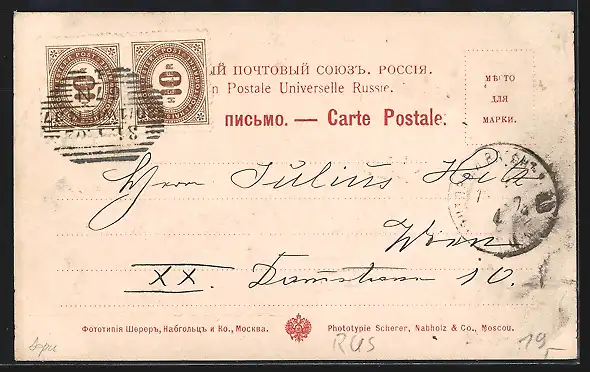 ЫЙ ПОЧТОВЫЙ СОЮЗЪ. РОССІЯ.
n Postale Universelle Russie.
ПИСЬМО. — Carte Postale.
МѢСТО
ДЛЯ
МАРКИ.
10 10
Herrn Julius Hilz
Wien
XX. 10.
Фототипія Шереръ, Набгольцъ и Ко., Москва.
Phototypie Scherer, Nabholz & Co., Moscou.
RUS
19,-